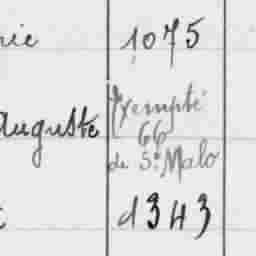 1075
Exempté
auguste
66
de St Malo
1343